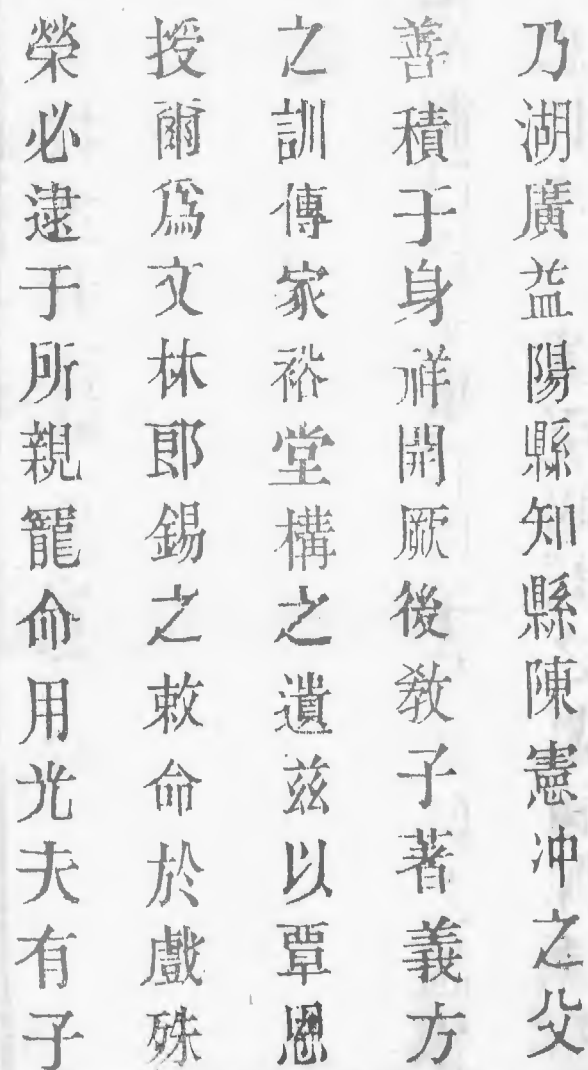 乃湖廣益陽縣知縣陳憲冲之父
善積于身祥開厥後敎子著義方
之訓傳家裕堂構之遺兹以覃恩
授爾爲文林郎錫之敕命於戲殊
榮必逮于所親寵命用光夫有子